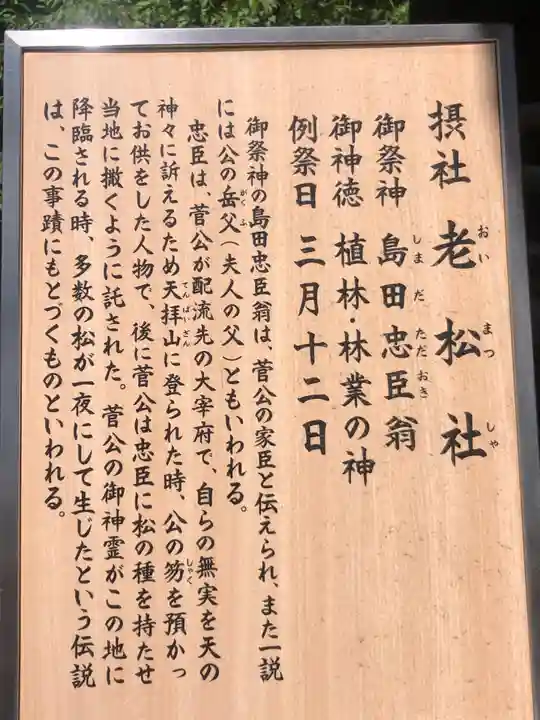 摂社 老松社
おい まつ しゃ
御祭神 島田忠臣翁
しま だ ただ おき
御神徳 植林・林業の神
例祭日 三月十二日
御祭神の島田忠臣翁は、菅公の家臣と伝えられ、また一説
には公の岳父(夫人の父)ともいわれる。
がく ふ
忠臣は、菅公が配流先の大宰府で、自らの無実を天の
神々に訴えるため天拝山に登られた時、公の笏を預かっ
てん ぱい ざん しゃく
てお供をした人物で、後に菅公は忠臣に松の種を持たせ
当地に撒くように託された。菅公の御神霊がこの地に
降臨される時、多数の松が一夜にして生じたという伝説
は、この事蹟にもとづくものといわれる。